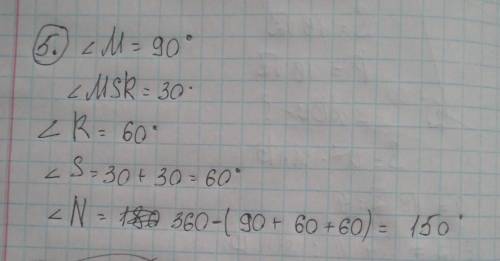 5. ∠M = 90°
∠MSR = 30°
∠R = 60°
∠S = 30 + 30 = 60°
∠N = 360 - (90 + 60 + 60) = 150°